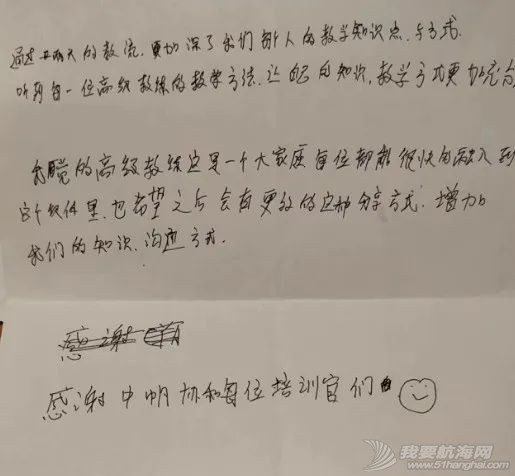 通过两天的教流.更加深了我们每个人的教学知识点.与方式.
听到每一位高级教练的教学方法.让自己的知识.教学方式更加充
我觉的高级教练这是一个大家庭每位都能很快的融入到
这个集体里.也希望之后会有更多的这种分享方式.增加
我们的知识.沟通方式.
感谢
感谢中帆协和每位培训官们
我要航海网
www.51hanghai.com